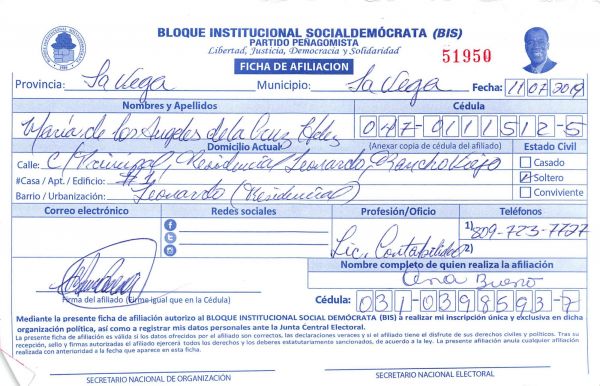 BLOQUE INSTITUCIONAL SOCIALDEMÓCRATA (BIS)
PARTIDO PEÑAGOMISTA
Libertad, Justicia, Democracia y Solidaridad
51950
FICHA DE AFILIACION
Provincia: La Vega Municipio: La Vega Fecha: 11/07/2019
Nombres y Apellidos Cédula
María de los Angeles de la Cruz Hdez 047-0111512-5
Domicilio Actual (Anexar copia de cédula del afiliado) Estado Civil
Calle: C/ Principal, Residencial Leonardo, Rancho Viejo Casado
#Casa / Apt. / Edificio: #1 Soltero
Barrio / Urbanización: Leonardo (Residencial) Conviviente
Correo electrónico Redes sociales Profesión/Oficio Teléfonos
1) 809-723-7727
Lic. Contabilidad 2)
Nombre completo de quien realiza la afiliación
Bueno
Firma del afiliado (Firme igual que en la Cédula) Cédula: 031-0398593-7
Mediante la presente ficha de afiliación autorizo al BLOQUE INSTITUCIONAL SOCIAL DEMÓCRATA (BIS) a realizar mi inscripción única y exclusiva en dicha
organización política, así como a registrar mis datos personales ante la Junta Central Electoral.
La presente ficha de afiliación es válida si los datos ofrecidos por el afiliado son correctos, las declaraciones veraces y si el afiliado tiene el disfute de sus derechos civiles y políticos. Tras su
recepción, sello y firmas autorizadas el afiliado ejercerá todos los derechos y los deberes estatutariamente sancionados, de acuerdo a la ley. La presente afiliación anula cualquier afiliación
realizada con anterioridad a la fecha que aparece en esta ficha.
SECRETARIO NACIONAL DE ORGANIZACIÓN SECRETARIO NACIONAL ELECTORAL